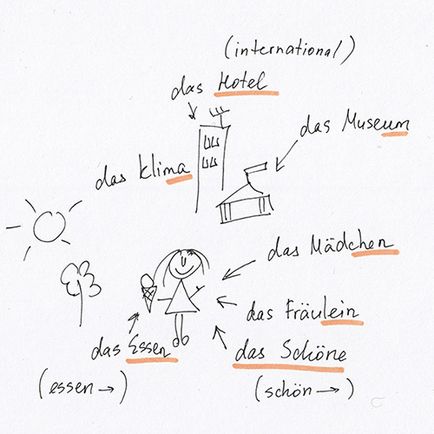 (international)
das Hotel
das Museum
das Klima
das Mädchen
das Fräulein
das Essen
das Schöne
(essen →)
(schön →)